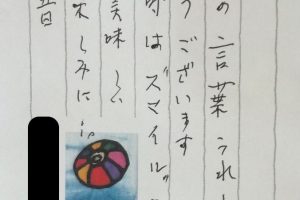 の言葉うれし
うございます
は"スマイル"
美味しい
しみに